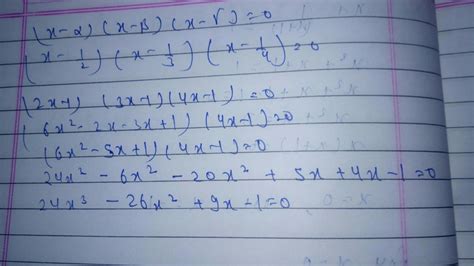 (x-α) (x-β) (x-√) = 0
(x - 1/2) (x - 1/3) (x - 1/4) = 0
(2x-1) (3x-1) (4x-1) = 0
(6x² - 2x - 3x + 1) (4x-1) = 0
(6x² - 5x + 1) (4x-1) = 0
24x² - 6x² - 20x² + 5x + 4x - 1 = 0
24x³ - 26x² + 9x - 1 = 0